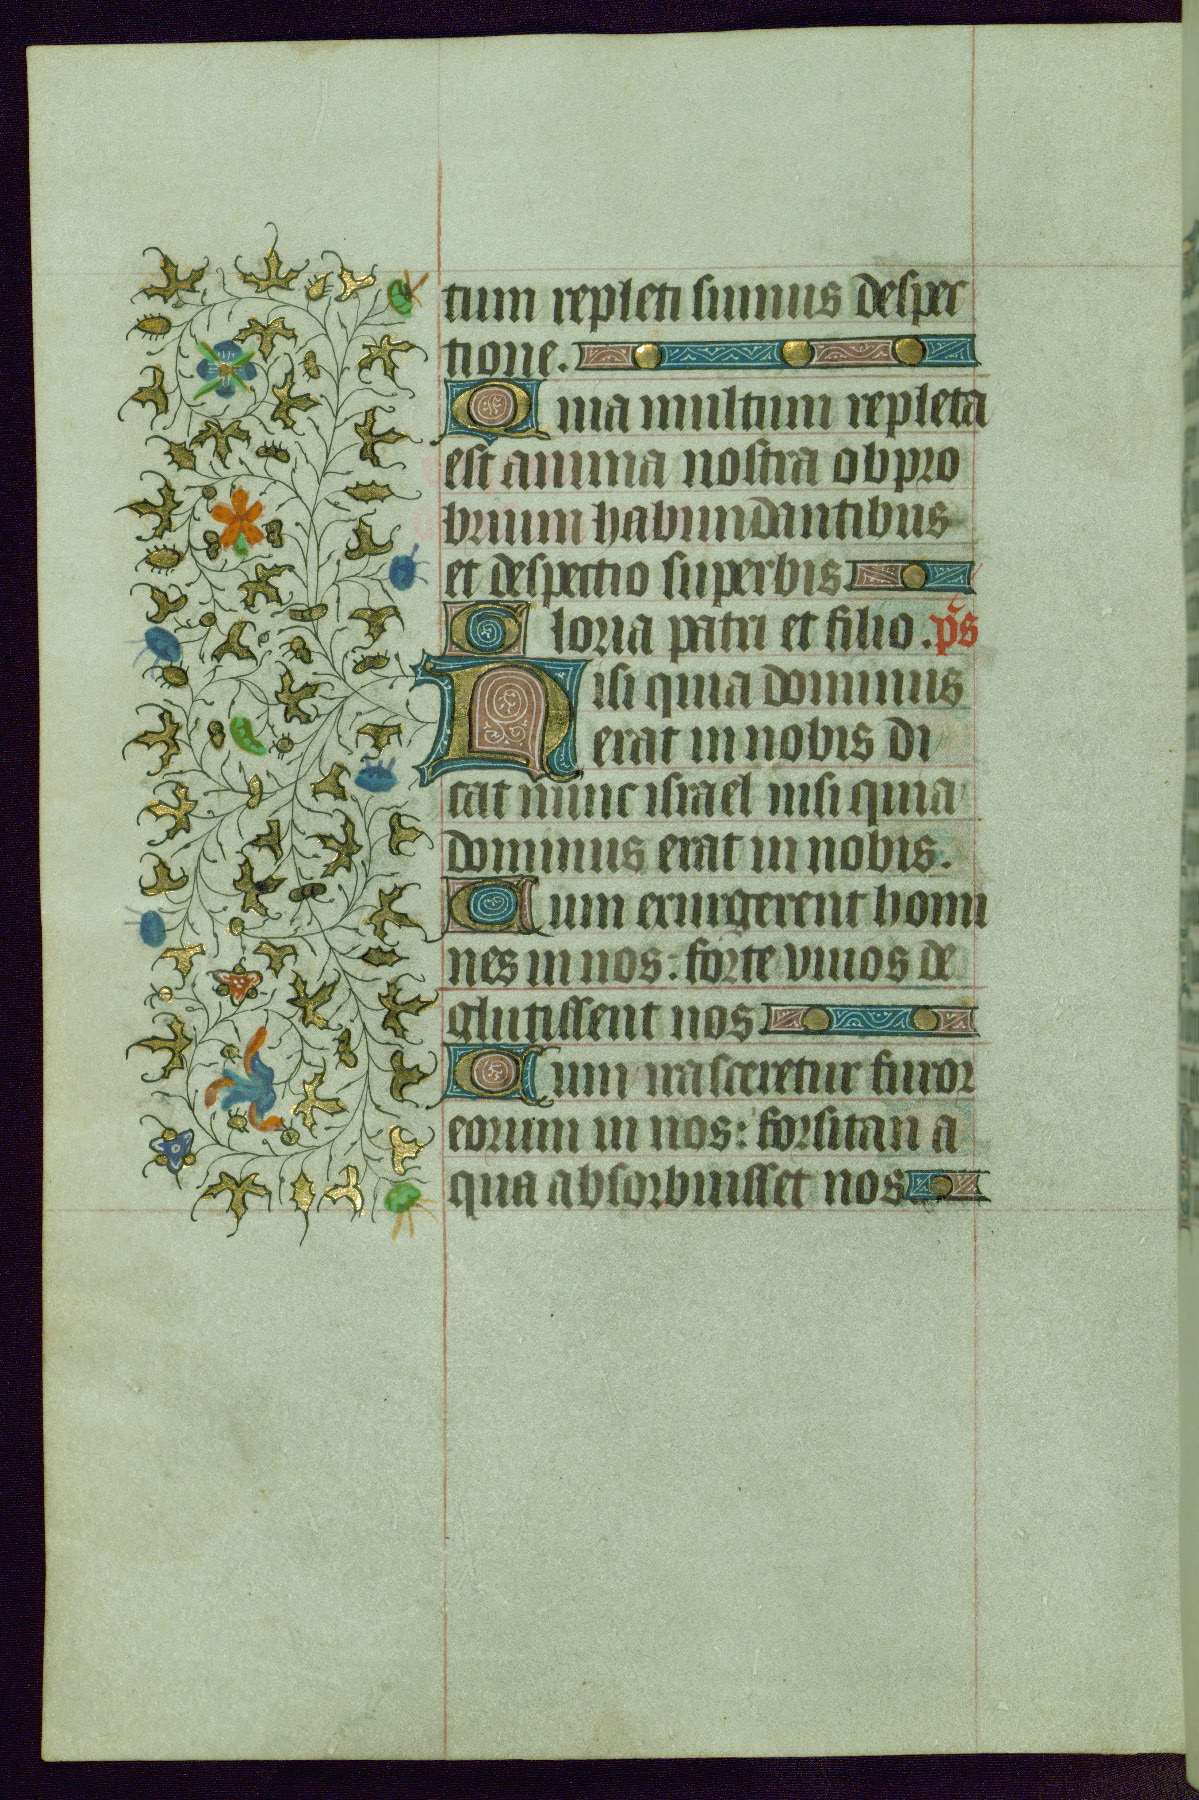 tum repleti sumus despec
tione.
Quia multum repleta
est anima nostra obpro
brium habundantibus
et despectio superbis
Gloria patri et filio. p̄s
Nisi quia dominus
erat in nobis di
cat nunc israel nisi quia
dominus erat in nobis.
Cum exurgerent homi
nes in nos: forte viuos de
glutissent nos
Cum irasceretur furor
eorum in nos: forsitan a
qua absorbuisset nos